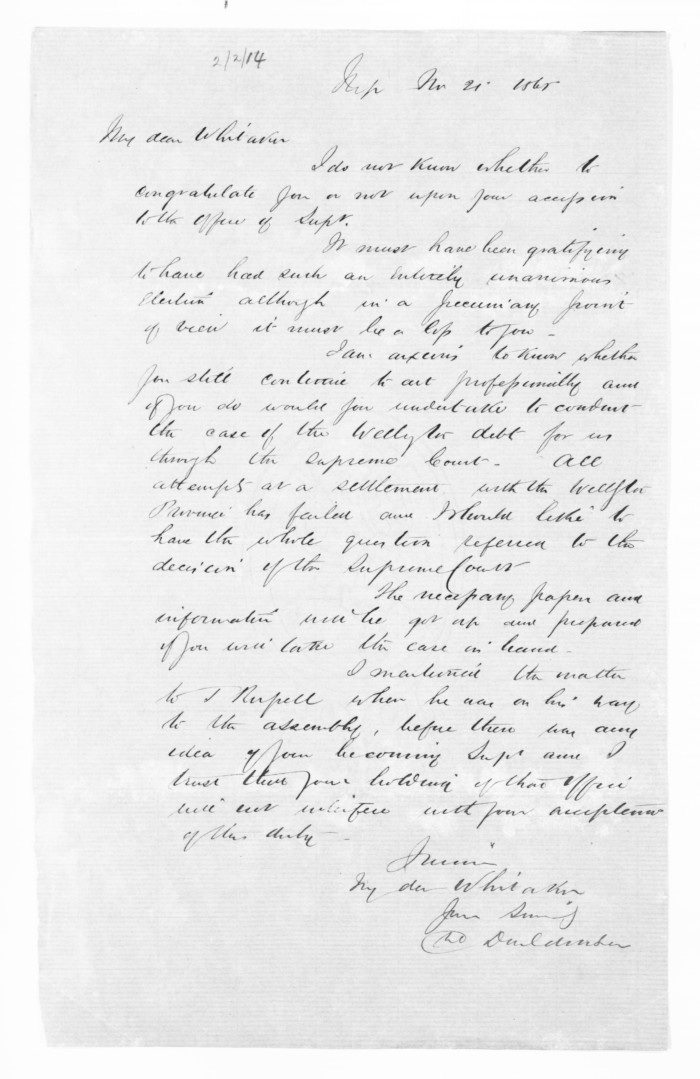 2/2/14
Nov 21 1865
My dear Whitaker
I do not know whether to
congratulate you or not upon your accession
to the office of Supt.
It must have been gratifying
to have had such an entirely unanimous
election although in a pecuniary point
of view it must be a loss to you -
I am anxious to know whether
you still continue to act professionally and
if you do would you undertake to conduct
the case of the Wellgton debt for us
through the Supreme Court - All
attempts at a settlement with the Wellgton
Province has failed and I should like to
have the whole question referred to the
decision of the Supreme Court
The necessary papers and
information will be got up and prepared
if you will take the case in hand -
I mentioned the matter
to T Russell when he was on his way
to the assembly, before there was any
idea of your becoming Supt and I
trust that your holding of that office
will not interfere with your acceptance
of this duty -
I remain
My dear Whitaker
Yours Sincerely